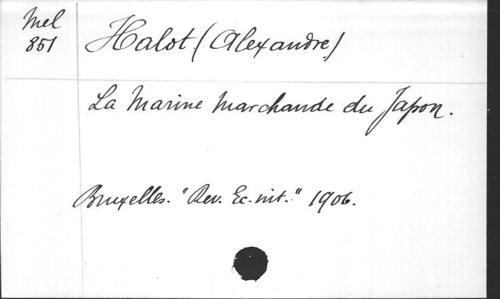 Mel
851
Halot (Alexandre)
La Marine Marchande du Japon.
Bruxelles. "Rev. Ec. int." 1906.